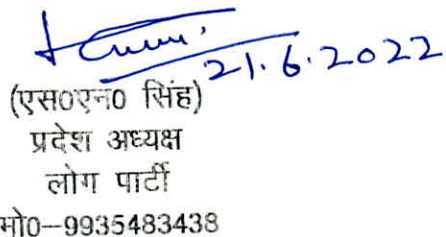 21.6.2022
(एस0एन0 सिंह)
प्रदेश अध्यक्ष
लोग पार्टी
मो0-9935483438